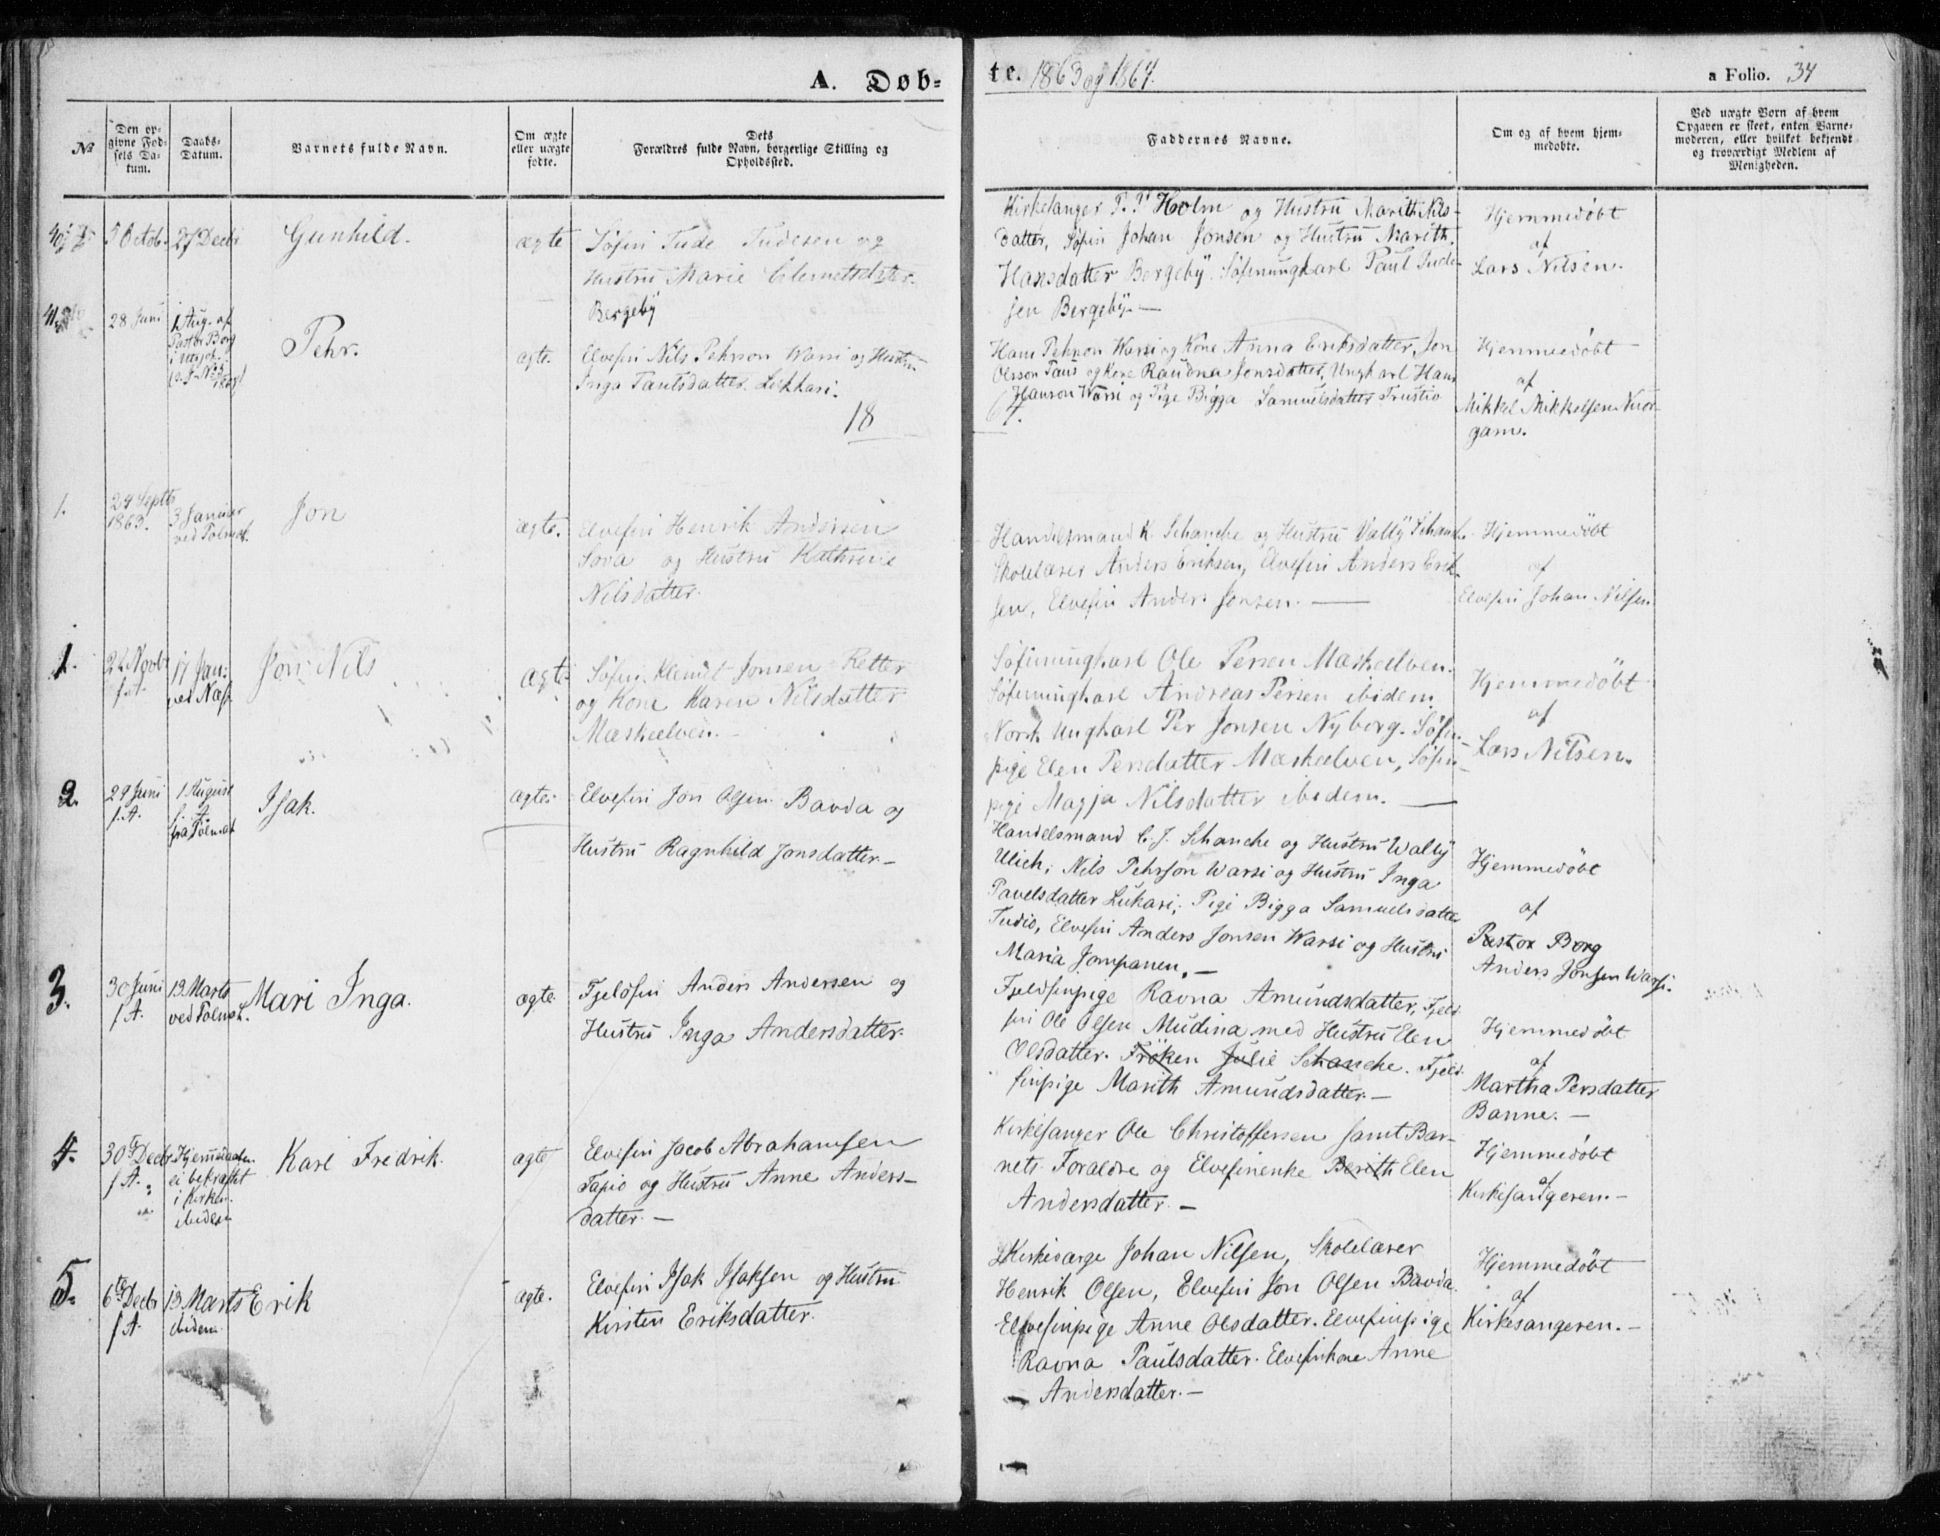 A. Døb-
te. 1863 og 1864.
a Folio. 34
No
Den op-
givne Fød-
sels Da-
tum.
Daabs-
Datum.
Barnets fulde Navn.
Om ægte
eller uægte
fødte.
Dets
Forældres fulde Navn, borgerlige Stilling og
Opholdssted.
Faddernes Navne.
Om og af hvem hjem-
medøbte.
Ved uægte Børn af hvem
Opgaven er skeet, enten Barne-
moderen, eller hvilket bekjendt
og troværdigt Medlem af
Menigheden.
40
5 Octob.
27 Decbr
Gunhild.
ægte
Söfin Tude Tudesen og
Hustru Marie Clemetsdatter.
Bergeby
Kirkesanger P. Holm og Hustru Marith Nils-
datter, Söfin Johan Jonsen og Hustru Marith
Hansdatter Bergeby. Söfinungkarl Paul Tude-
sen Bergeby. —
Hjemmedöbt
af
Lars Nilsen.
41
28 Juni
1 Aug. af
Pastor Borg
i Utsjok.
Pehr.
ægte.
Elvefin Nils Pehrson Warsi og Hustru
Inga Paulsdatter Lukkari.
18
Hans Pehrson Warsi og Kone Anna Eriksdatter, Jon
Olsson Paus og Kone Raudna Jonsdatter, Ungkarl Hans
Hanson Warsi og Pige Bigga Samuelsdatter
64.
Hjemmedöbt
af
Mikkel Mikkelsen Nuor-
gam.
1.
24 Septb
1863.
3 Januar
ved Polmak.
Jon
ægte.
Elvefin Henrik Andersen
Sova og Hustru Kathrine
Nilsdatter.
Handelsmand K. Schanche og Hustru Vally Schanche
Skolelærer Anders Eriksen, Elvefin Anders Erik-
sen, Elvefin Anders Jonsen. —
Hjemmedöbt
af
Elvefin Johan Nilsen
1.
22 Novbr
f. A.
17 Jan:
ved Næss.
Jon Nils
ægte.
Söfin Klemet Jonsen Retter
og Kone Karen Nilsdatter
Mæskelven. —
Söfinungkarl Ole Persen Mæskelven.
Söfinungkarl Andreas Persen ibidem.
Norsk Ungkarl Per Jonsen Nyborg. Söfin-
pige Elen Persdatter Mæskelven, Söfin-
pige Magja Nilsdatter ibidem. —
Hjemmedöbt
af
Lars Nilsen.
2.
29 Juni
f. A.
1 August
f. A.
fra Polmak
Isak.
ægte.
Elvefin Jon Olsen Bavda og
Hustru Ragnhild Jonsdatter. —
Handelsmand C. J. Schanche og Hustru Wally
Ulich; Nils Pehrson Warsi og Hustru Inga
Pavelsdatter Lukari; Pige Bigga Samuelsdatter
Tudio, Elvefin Anders Jonsen Warsi og Hustru
Maria Jompanen. —
Hjemmedöbt
af
Pastor Borg
Anders Jonsen Warsi.
3.
30 Juni
f. A.
13 Marts
ved Polmak.
Mari Inga.
ægte.
Fjeldfin Anders Andersen og
Hustru Inga Andersdatter.
Fjeldfinpige Ravna Amundsdatter, Fjeld-
fin Ole Olsen Mudina med Hustru Elen
Olsdatter. Fröken Julie Schanche. Fjeld-
finpige Marith Amundsdatter. —
Hjemmedöbt
af
Martha Persdatter
Banne. —
4.
30te Decbr
f. A.
Hjemmedaaben
ei bekræftet
i Kirken.
ibidem
Karl Fredrik.
ægte
Elvefin Jacob Abrahamsen
Tapio og Hustru Anne Anders-
datter. —
Kirkesanger Ole Christoffersen samt Bar-
nets Forældre og Elvefinenke Berith Elen
Andersdatter. —
Hjemmedöbt
af
Kirkesangeren. —
5.
6te Decbr
f. A.
13 Marts
ibidem.
Erik
ægte.
Elvefin Isak Isaksen og Hustru
Kirsten Eriksdatter.
Kirkeværge Johan Nilsen, Skolelærer
Henrik Olsen, Elvefin Jon Olsen Bavda.
Elvefinpige Anne Olsdatter. Elvefinpige
Ravna Paulsdatter. Elvefinkone Anne
Andersdatter. —
Hjemmedöbt
af
Kirkesangeren. —